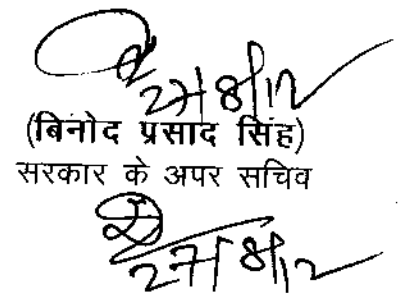 27/8/12
(बिनोद प्रसाद सिंह)
सरकार के अपर सचिव
27/8/12